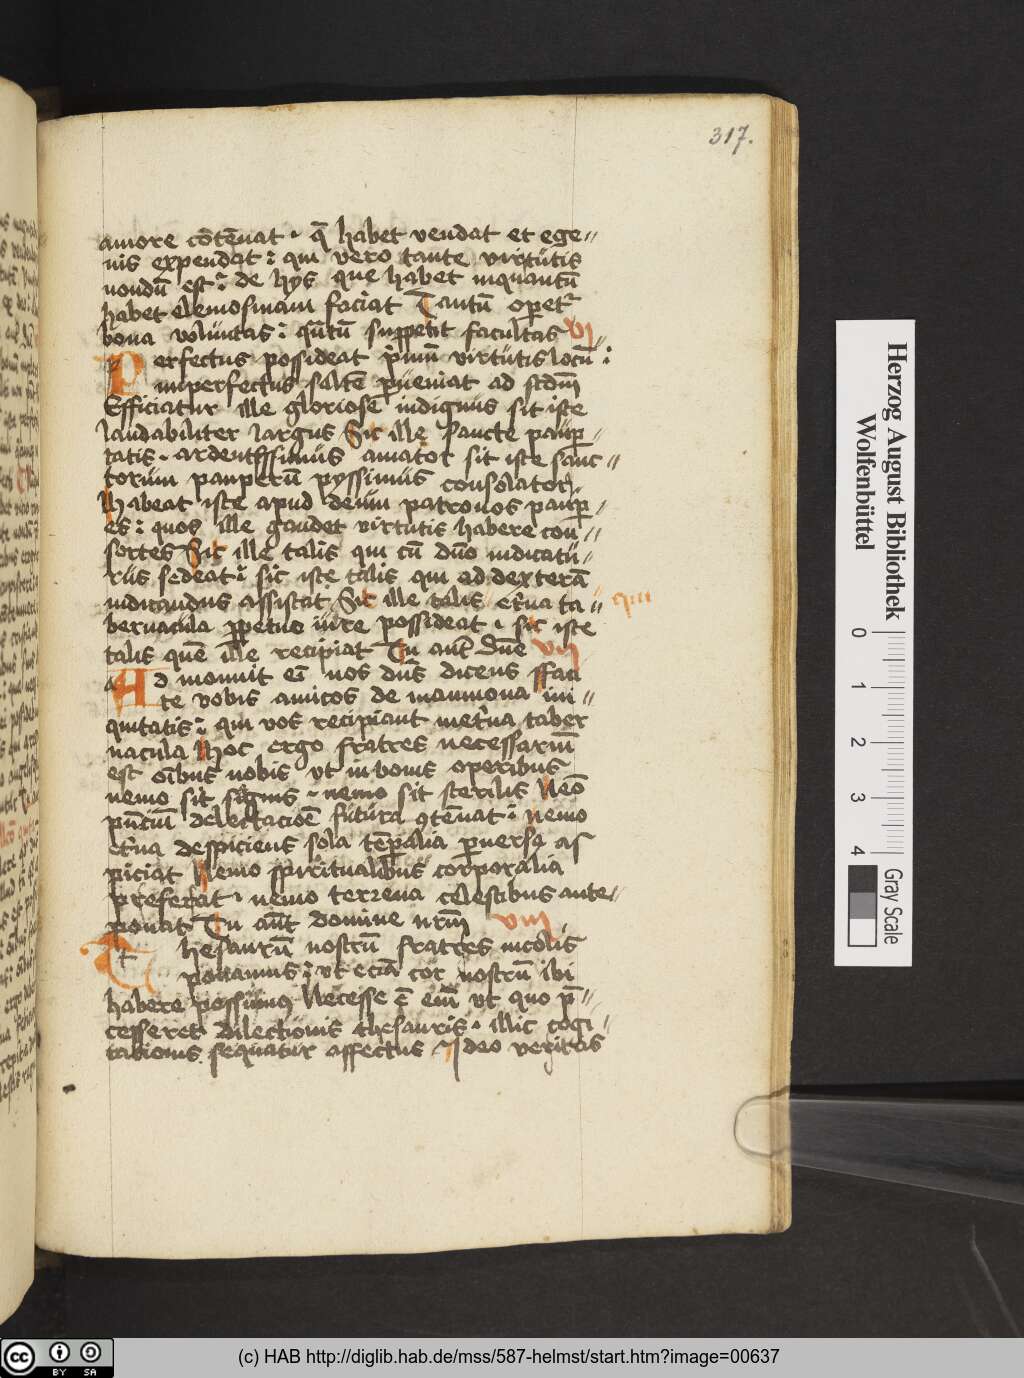 317.
amore cōtēnat · q̄ habet vendat et ege//
nis expendat : qui vero tante virtutis
nondū est : de hys que habet inquantū
habet elemosinam faciat Tantū oꝑetr
bona voluntas : q̄ntū suppetit facultas vi
Perfectus possideat p̄mū virtutis locū :
imperfectus saltē ꝑueniat ad scdm̄
Efficiatur ille gloriose indignus sit iste
laudabiliter largus Sic ille sancte pauꝑ//
tatis · ardentissimus amator sit iste sanc//
torum pauperū pyssimus consolator
Habeat iste apud deum patronos pauꝑ//
es : quos ille gaudet virtutis habere con//
sortes Sic ille talis qui cū dūo iudicatu//
rus sedeat : sic iste talis qui ad dexterā
iudicandus assistat Sic ille talis et̄na ta//
bernacula ꝑpetuo iure possideat · sic iste
talis quē ille recipiat Tu aut̄ dūe vii
Ad monuit ei nos dūs dicens ffaci
te vobis amicos de mammona ini//
quitatis : qui vos recipiant in et̄na taber
nacula Hoc ergo fratres necessariū
est oībus nobis vt in bonis operibus
nemo sit signis · nemo sit sterilis Neo
pn̄cium delectacioē futura ꝯtēnat : nemo
et̄na despiciens sola tēꝑalia ꝑuersa as
piciat Nemo spiritualibus corporalia
preferat · nemo terrena celestibus ante//
ponat Tu aūt domine nr̄m viii
Thesaurū nostrū fratres in colis
ponamus : vt eciā cor nostrū ibi
habere possimꝰ Necesse ē eni vt quo p̄//
cesseret dilectionis thesauris · illic cogi//
tationis sequatur affectus Ideo veritas
Herzog August Bibliothek
Wolfenbüttel
0 1 2 3 4
Gray Scale
cc BY SA
(c) HAB http://diglib.hab.de/mss/587-helmst/start.htm?image=00637